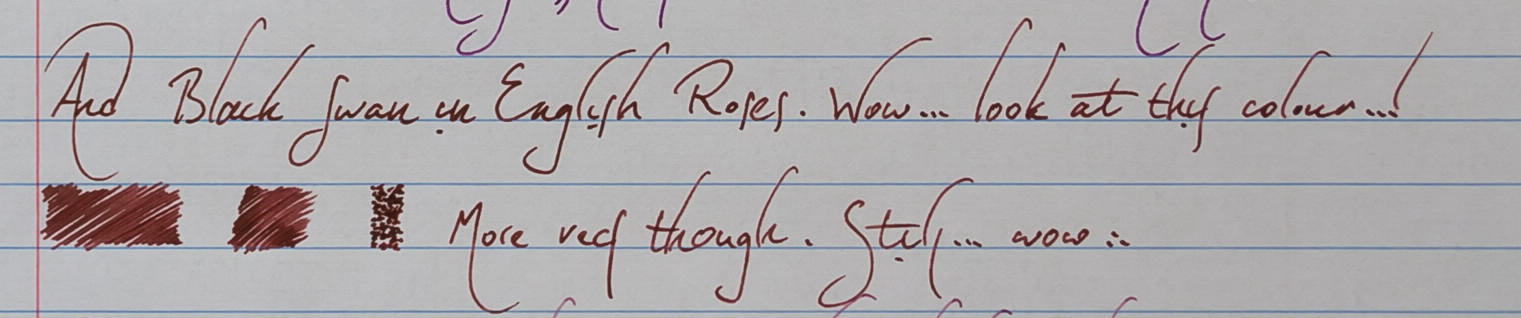 And Black Swan in English Roses. Wow... look at this colour...!
More red though. Still... wow...